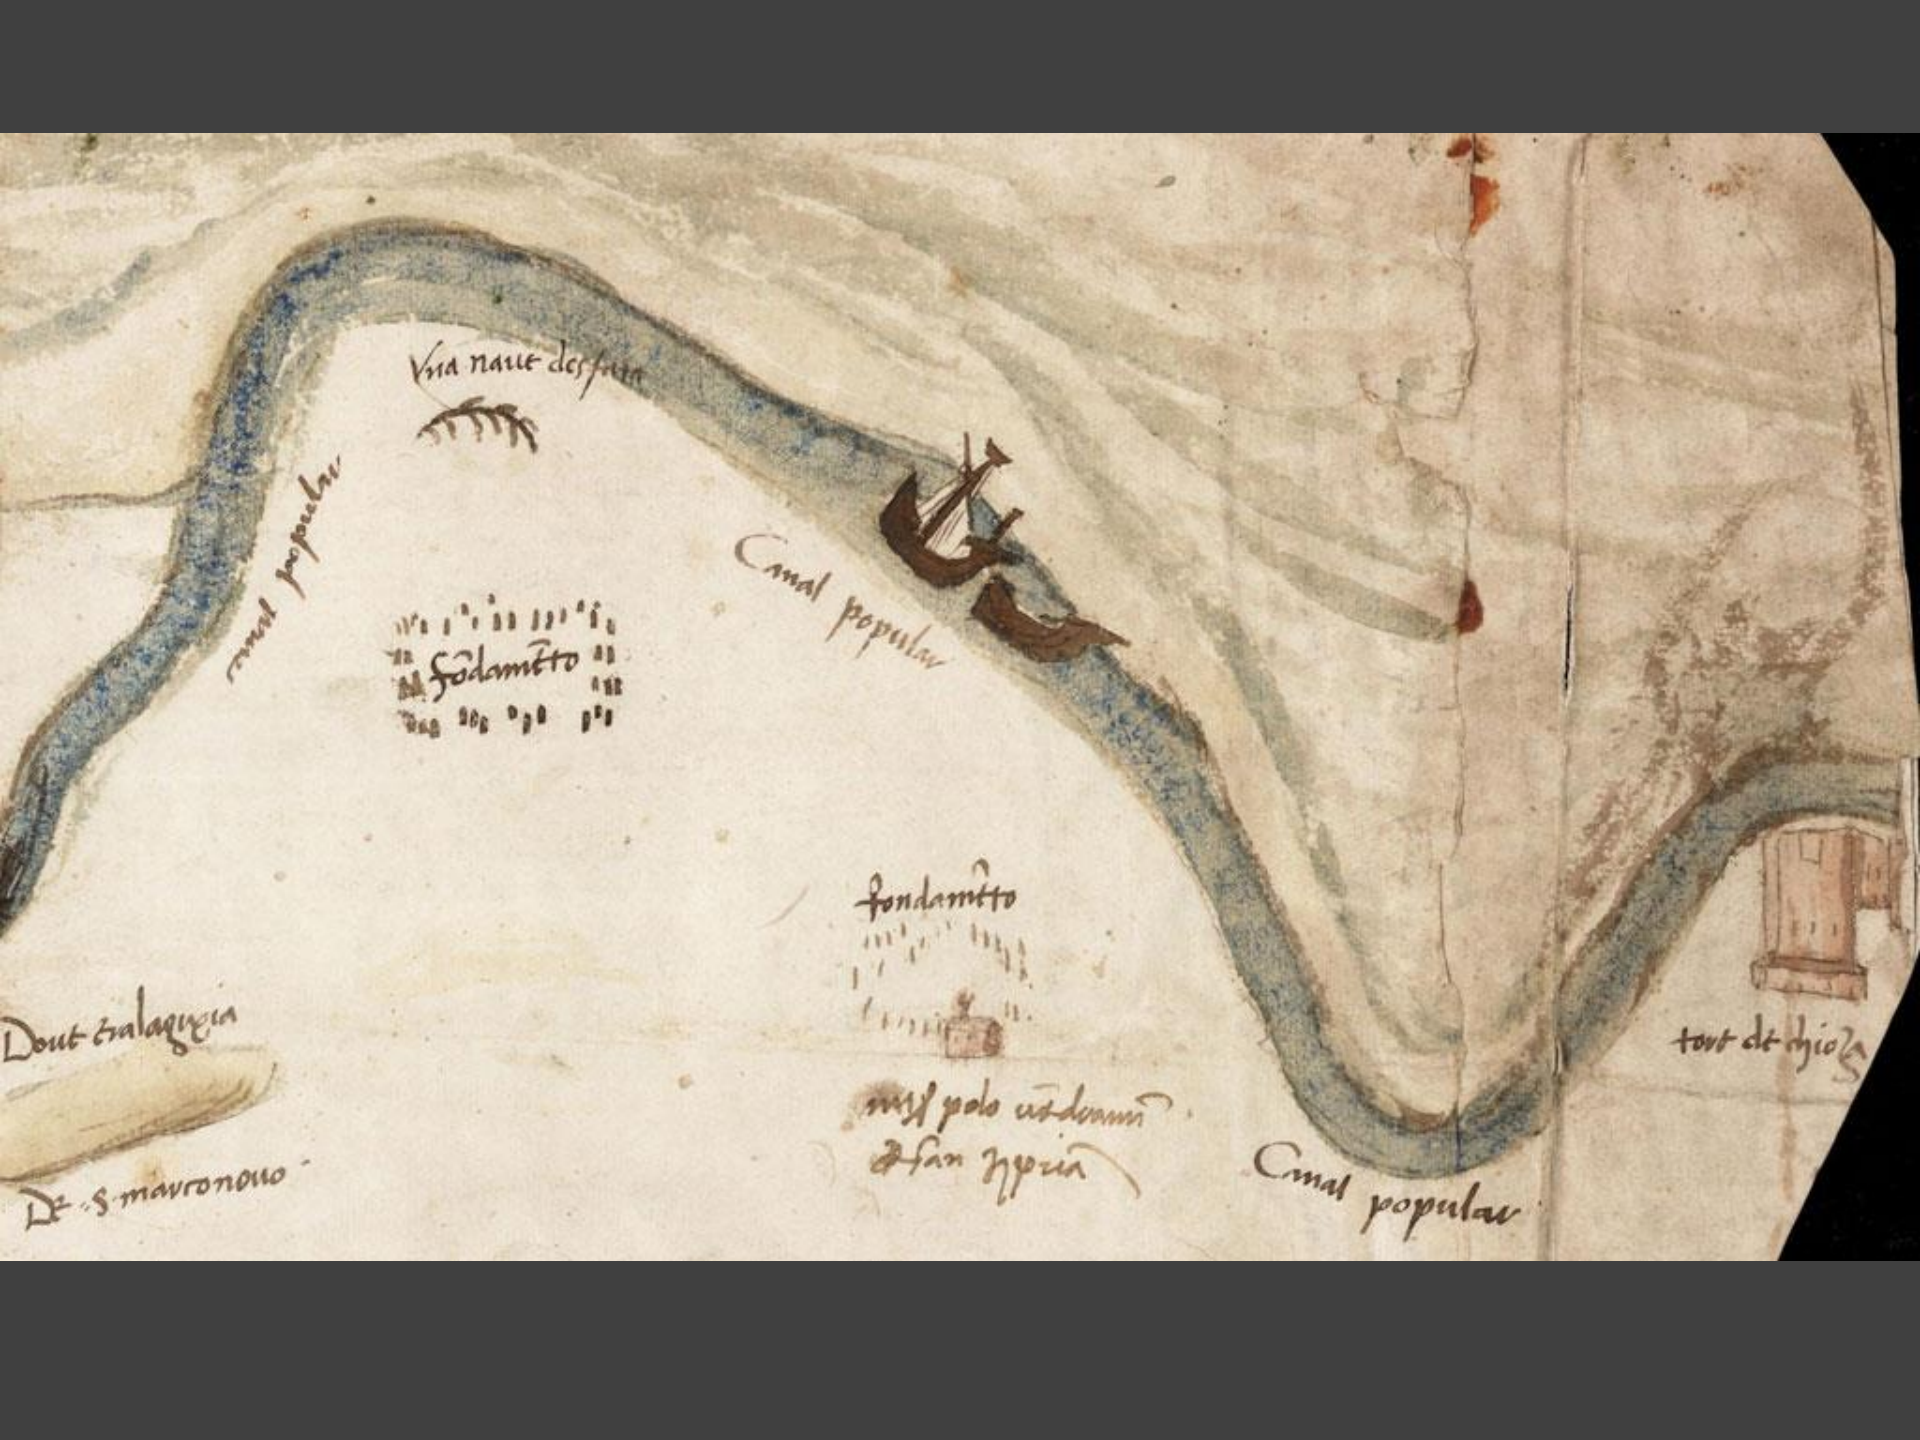 Vna naue desfata
canal popular
Canal popular
fōdamēto
fondamēto
Doue era la giexia
De .S. marconouo
polo vēdramin
san
Canal popular
tore de chioza